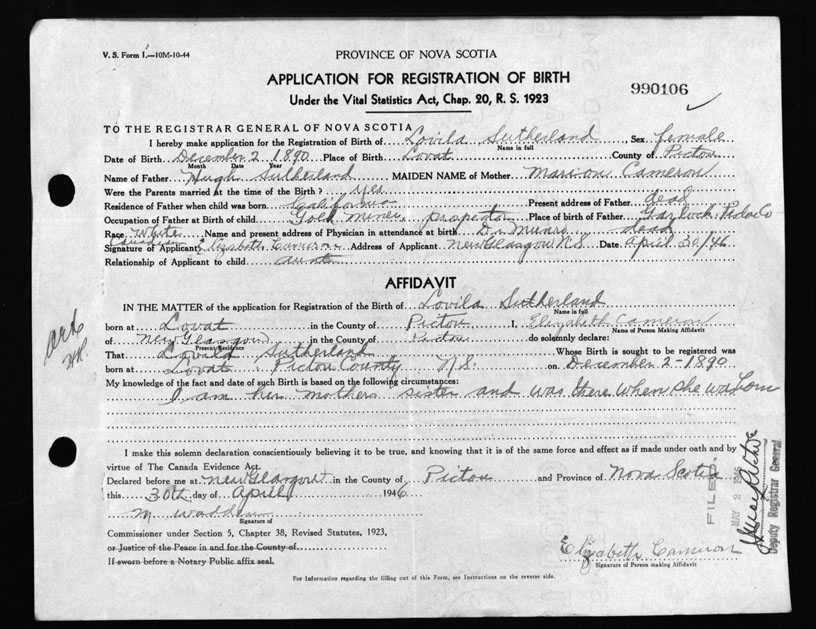 V. S. Form 1.—10M-10-44
PROVINCE OF NOVA SCOTIA
APPLICATION FOR REGISTRATION OF BIRTH
990106
Under the Vital Statistics Act, Chap. 20, R. S. 1923
TO THE REGISTRAR GENERAL OF NOVA SCOTIA
I hereby make application for the Registration of Birth of Lovila Sutherland, Sex female
Name in full
Date of Birth December 2 1890 Place of Birth Lovat County of Pictou
Month Date Year
Name of Father Hugh Sutherland MAIDEN NAME of Mother Marion Cameron
Were the Parents married at the time of the Birth? yes
Residence of Father when child was born California Present address of Father dead
Occupation of Father at Birth of child Gold Miner, prospector Place of birth of Father Garloch, Pictou Co
Race White Name and present address of Physician in attendance at birth Dr. Munro dead
Canadian
Signature of Applicant Elizabeth Cameron Address of Applicant New Glasgow N.S. Date April 30/46
Relationship of Applicant to child aunt
AFFIDAVIT
IN THE MATTER of the application for Registration of the Birth of Lovila Sutherland
Name in full
born at Lovat in the County of Pictou I, Elizabeth Cameron
Name of Person Making Affidavit
of New Glasgow in the County of Pictou do solemnly declare:
Present Residence
That Lovila Sutherland Whose Birth is sought to be registered was
born at Lovat Pictou County N.S. on December 2 - 1890
My knowledge of the fact and date of such Birth is based on the following circumstances:
I am her mothers sister and was there when she was born
I make this solemn declaration conscientiously believing it to be true, and knowing that it is of the same force and effect as if made under oath and by
virtue of The Canada Evidence Act.
Declared before me at New Glasgow in the County of Pictou and Province of Nova Scotia
this 30th day of April 1946
M Wadden
Signature of
Commissioner under Section 5, Chapter 38, Revised Statutes, 1923,
or Justice of the Peace in and for the County of
If sworn before a Notary Public affix seal.
Elizabeth Cameron
Signature of Person making Affidavit
For Information regarding the filling out of this Form, see Instructions on the reverse side.
FILED
MAY 2
Deputy Registrar General